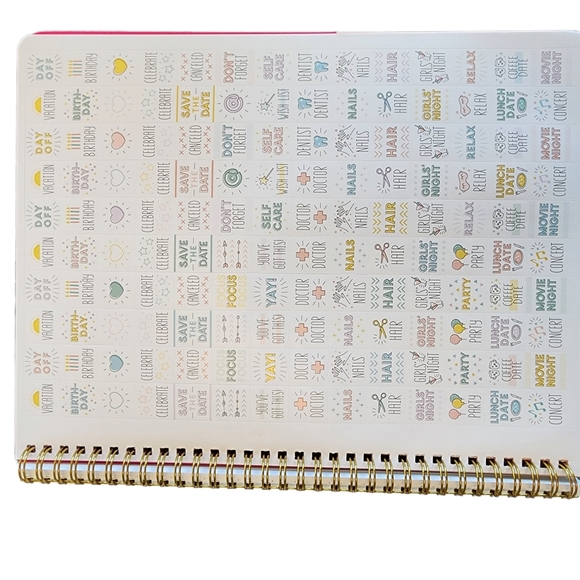 DAY OFF BIRTHDAY CELEBRATE CANCELED DON'T FORGET SELF CARE DENTIST NAILS HAIR GIRLS' NIGHT RELAX COFFEE DATE MOVIE NIGHT
VACATION BIRTH-DAY CELEBRATE SAVE THE DATE WISH LIST DENTIST NAILS HAIR GIRLS' NIGHT RELAX LUNCH DATE CONCERT
DAY OFF BIRTHDAY CELEBRATE CANCELED DON'T FORGET SELF CARE DENTIST NAILS HAIR GIRLS' NIGHT RELAX COFFEE DATE MOVIE NIGHT
VACATION BIRTH-DAY CELEBRATE SAVE THE DATE WISH LIST DOCTOR NAILS HAIR GIRLS' NIGHT RELAX LUNCH DATE CONCERT
DAY OFF BIRTHDAY CELEBRATE CANCELED DON'T FORGET SELF CARE DOCTOR NAILS HAIR GIRLS' NIGHT RELAX COFFEE DATE MOVIE NIGHT
VACATION BIRTH-DAY CELEBRATE SAVE THE DATE YOU'VE GOT THIS! DOCTOR NAILS HAIR GIRLS' NIGHT PARTY LUNCH DATE CONCERT
DAY OFF BIRTHDAY CELEBRATE CANCELED FOCUS YAY! DOCTOR NAILS HAIR GIRLS' NIGHT PARTY COFFEE DATE MOVIE NIGHT
VACATION BIRTH-DAY CELEBRATE SAVE THE DATE YOU'VE GOT THIS! DOCTOR NAILS HAIR GIRLS' NIGHT PARTY LUNCH DATE CONCERT
DAY OFF BIRTHDAY CELEBRATE CANCELED FOCUS YAY! DOCTOR NAILS HAIR GIRLS' NIGHT PARTY COFFEE DATE MOVIE NIGHT
VACATION BIRTH-DAY CELEBRATE SAVE THE DATE YOU'VE GOT THIS! DOCTOR NAILS HAIR GIRLS' NIGHT PARTY LUNCH DATE CONCERT